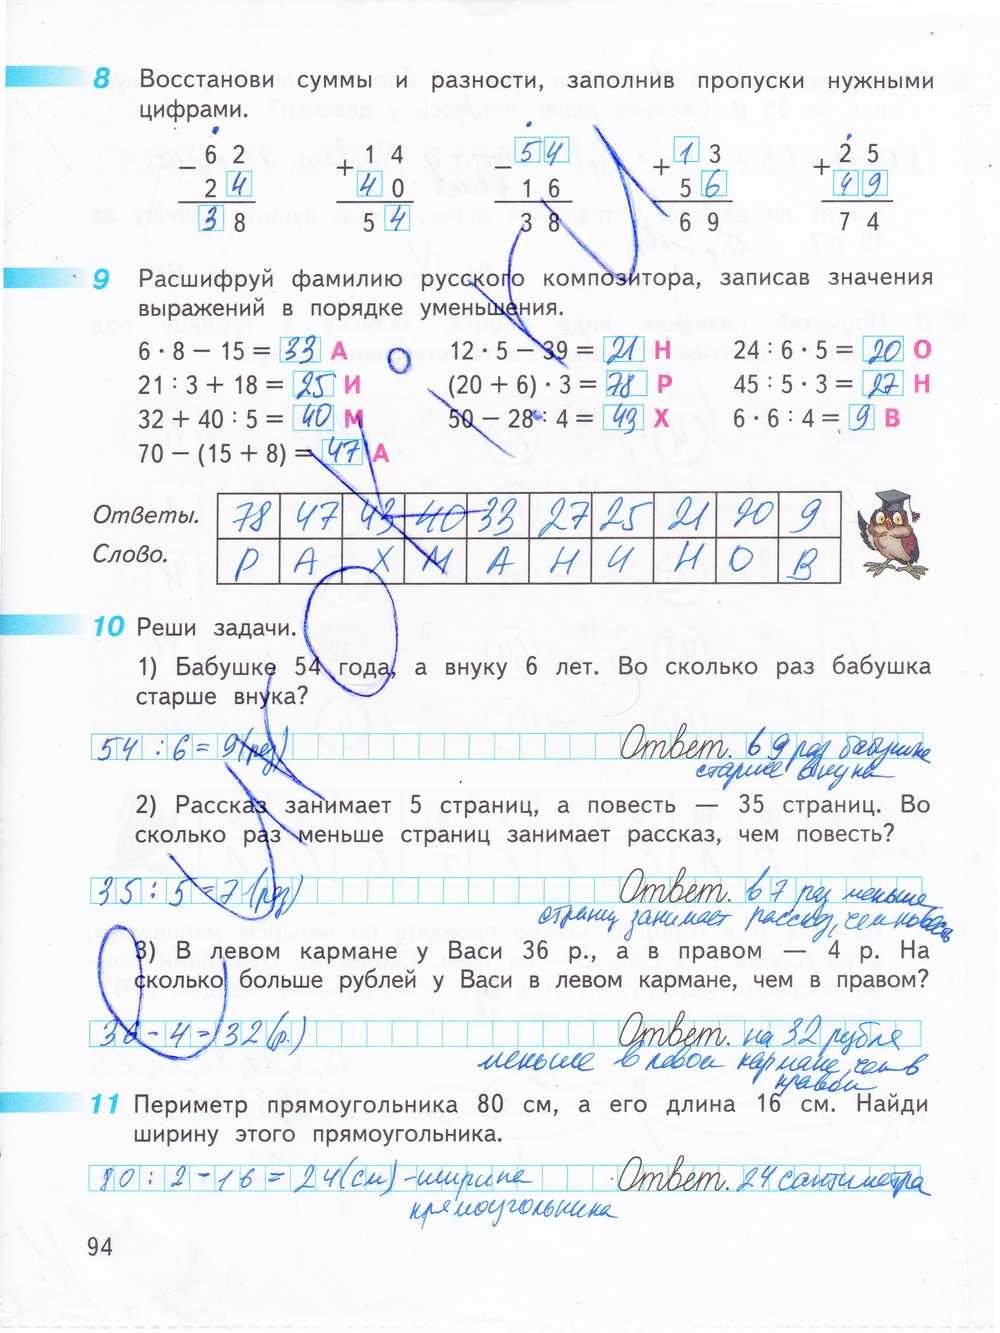 8 Восстанови суммы и разности, заполнив пропуски нужными
цифрами.
62 14 54 13 25
− + − + +
24 40 16 56 49
38 54 38 69 74
9 Расшифруй фамилию русского композитора, записав значения
выражений в порядке уменьшения.
6 · 8 − 15 = 33 А 12 · 5 − 39 = 21 Н 24 : 6 · 5 = 20 О
21 : 3 + 18 = 25 И (20 + 6) · 3 = 78 Р 45 : 5 · 3 = 27 Н
32 + 40 : 5 = 40 М 50 − 28 : 4 = 43 Х 6 · 6 : 4 = 9 В
70 − (15 + 8) = 47 А
Ответы. 78 47 43 40 33 27 25 21 20 9
Слово. Р А Х М А Н И Н О В
10 Реши задачи.
1) Бабушке 54 года, а внуку 6 лет. Во сколько раз бабушка
старше внука?
54 : 6 = 9 (раз) Ответ. в 9 раз бабушка
старше внука
2) Рассказ занимает 5 страниц, а повесть — 35 страниц. Во
сколько раз меньше страниц занимает рассказ, чем повесть?
35 : 5 = 7 (раз) Ответ. в 7 раз меньше
страниц занимает рассказ, чем повесть
3) В левом кармане у Васи 36 р., а в правом — 4 р. На
сколько больше рублей у Васи в левом кармане, чем в правом?
36 − 4 = 32 (р.) Ответ. на 32 рубля
меньше в левом кармане, чем в
правом
11 Периметр прямоугольника 80 см, а его длина 16 см. Найди
ширину этого прямоугольника.
80 : 2 − 16 = 24 (см) − ширина Ответ. 24 сантиметра
прямоугольника
94